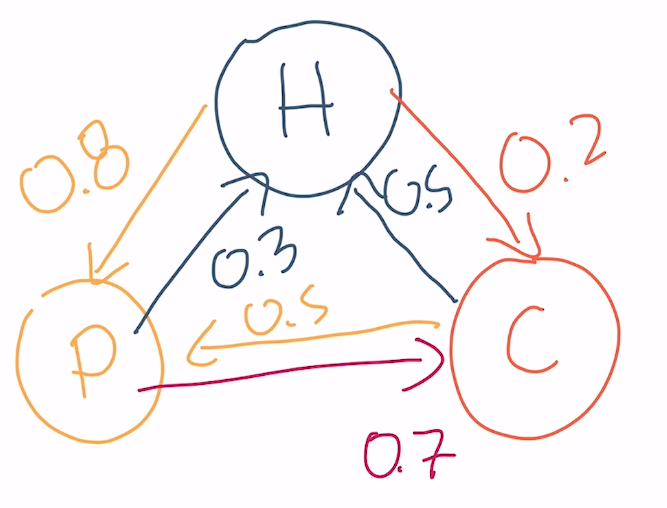 H
0.8
0.2
0.5
0.3
0.5
P
C
0.7